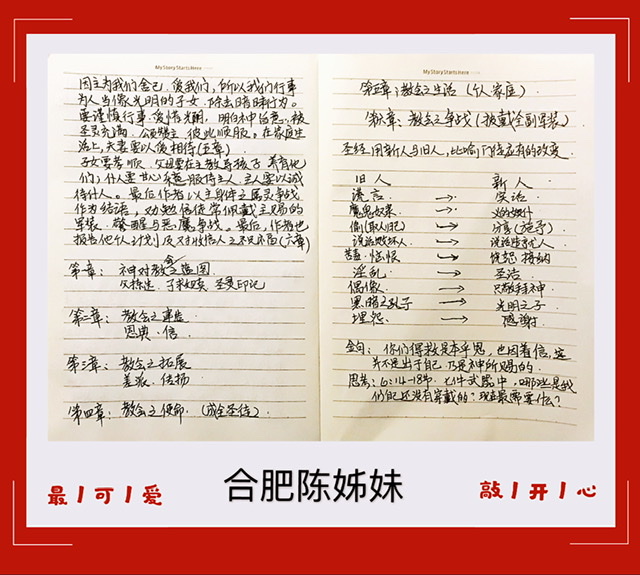 My Story Starts Here
因主为我们舍己、复我们，所以我们行事
为人当像光明的子女，除去暗昧行为。
要谨慎行事，爱惜光阴，明白神旨意，被
圣灵充满，口唱颂主，彼此顺服。在家庭生
活上，夫妻要以爱相待(五章)
子女要孝顺，父母要在主教导孩子，养育他
们；仆人要甘心乐意服侍主人，主人要以诚
待仆人。最后作者以主身体之属灵争战
作为结语，劝勉信徒常佩戴主赐的
军装，警醒与恶魔争战。最后，作者也
报告他个人计划及对收信人之祝福(六章)
第一章：神对教会之蓝图
父拣选 子救赎 圣灵印记
第二章：教会之建造
恩典·信
第三章：教会之拓展
差派、传扬
第四章：教会之使命 (成全圣徒)
My Story Starts Here
第五章：教会之生活 (个人家庭)
第六章：教会之争战 (披戴全副军装)
圣经用新人与旧人，比喻门徒应有的改变
旧人 新人
谎言 → 实话
魔鬼效果 →
偷(取人们) → 分享(施予)
说话败坏人 → 说话造就人
苦毒·恼恨 → 饶恕 接纳
淫乱 → 圣洁
偶像 → 只敬拜神
黑暗之孔子 → 光明之子
埋怨 → 感谢
金句：你们得救是本乎恩，也因着信，这
并不是出于自己，乃是神所赐的
思考：6:14-18节，七件武器中，哪些是我
们自己还没有穿戴的？现在最需要什么？
最丨可丨爱
合肥陈姊妹
敲丨开丨心